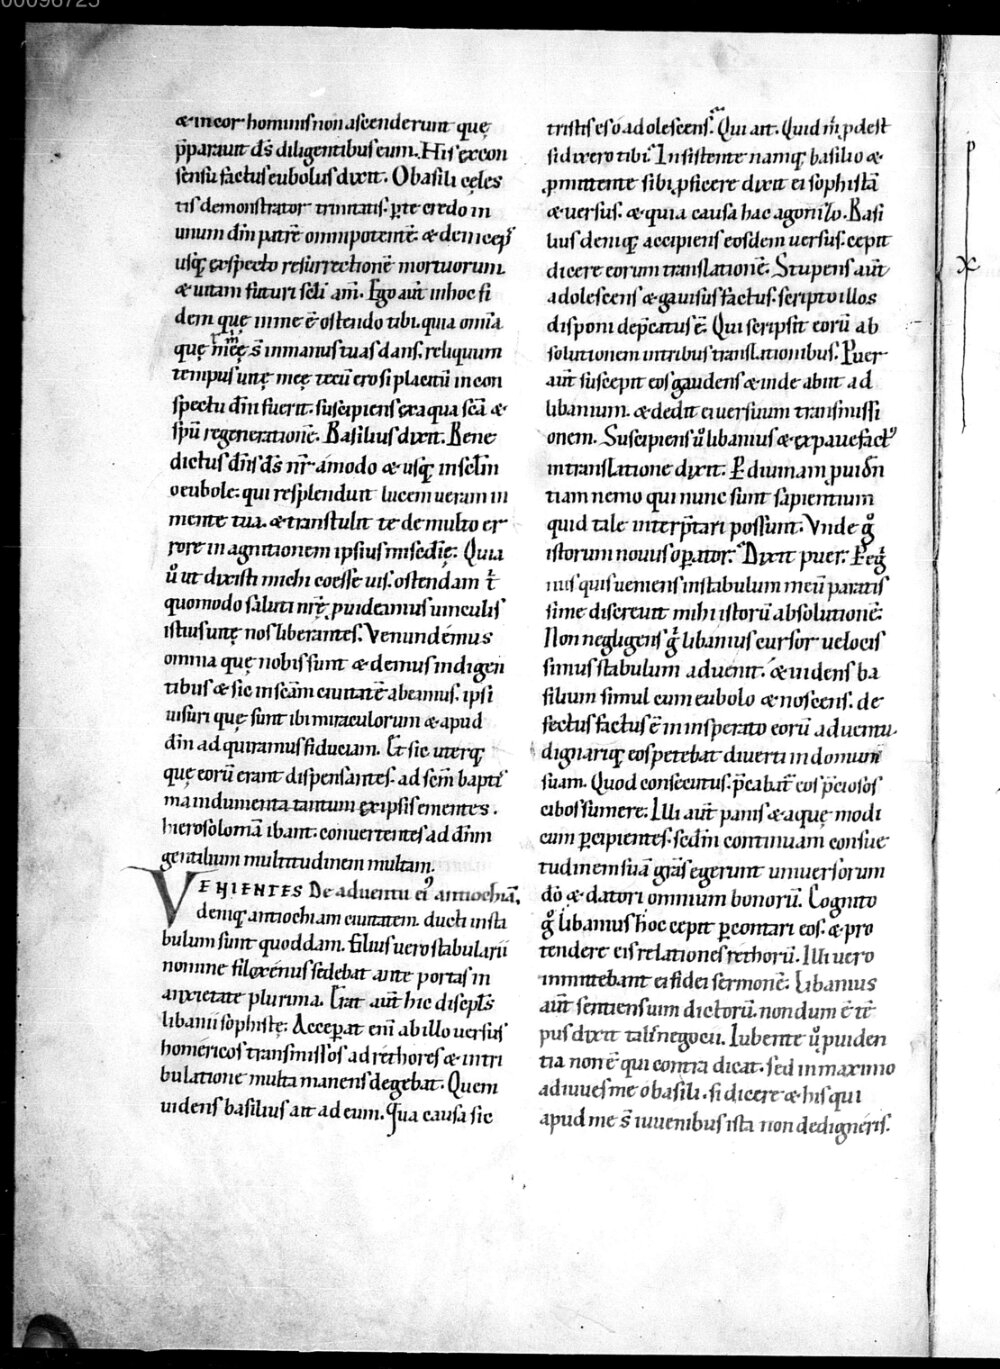 00098725
& in cor hominis non ascenderunt quę
p̄parauit d̄s diligentibus eum. His ex con
sensu factus eubolus dixit. O basili cęles
tis demonstrator trinitatis. p̲ te credo in
unum dm̄ patrē omnipotentē. & deinceps
usq; exspecto resurrectionē mortuorum.
& uitam futuri sc̄li am̄. Ego aut̄ in hoc fi
dem quę in me ē ostendo tibi. quia omīa
quę meę s̄ in manus tuas dans. reliquum
tempus uitę meę tecū ero si placitū in con
spectu dn̄i fuerit. suscipiens ex aqua sc̄a &
sp̄u regenerationē. Basilius dixit. Bene
dictus dn̄s d̄s nr̄ amodo & usq; in sc̄lm̄
o eubole: qui resplenduit lucem ueram in
mente tua. & transtulit te de multo er
rore in agnitionem ipsius mis̄c̄dię: Quia
ů ut dixisti michi coesse uis. ostendam t̄
quomodo saluti nr̄ę puideamus uinculis
istius uitę nos liberantes. Venundemus
omnia quę nobis sunt & demus indigen
tibus & sic in sc̄am ciuitatē abeamus. ipsi
uisuri quę sunt ibi miraculorum & apud
dm̄ adquiramus fiduciam. Et sic uterq;
quę eorū erant dispensantes. ad sc̄m̄ baptis
ma indumenta tantum ex ipsis ementes.
hierosolomā ibant. conuertentes ad dn̄m
gentilium multitudinem multam.
VENIENTES De aduentu ei᾽ antiochiā.
deniq; antiochiam ciuitatem. ducti in sta
bulum sunt quoddam. filius uero stabularii
nomine filoxenus sedebat ante portas in
anxietate plurima. Erat aut̄ hic discipl̄s
libanii sophistę. Accep̲at enī ab illo uersus
homericos transmissos ad rethores & in tri
bulatione multa manens degebat. Quem
uidens basilius ait ad eum. Qua causa sic
tristis es o adolescens. Qui ait. Quid m̄ p̲dest
si dixero tibi. Insistente namq; basilio &
p̲mittente sibi p̲ficere dixit ei sophistā
& uersus. & quia causa hac agonizo. Basi
lius deniq; accipiens eosdem uersus. cepit
dicere eorum translationē. Stupens aut̄
adolescens & gauisus factus. scripto illos
disponi dep̄catus ē. Qui scripsit eorū ab
solutionem in tribus translationibus. Puer
aut̄ suscepit eos gaudens & inde abiit ad
libanium. & dedit ei uersuum transmissi
onem. Suscipiens ů libanius & expauefact᾽
in translatione dixit: P̲ diuinam p̲uiden
tiam nemo qui nunc sunt sapientium
quid tale interp̄tari possunt. Vnde g̊
istorum nouus op̲ator. Dixit puer. P̲eg̍
nus quis ueniens in stabulum meū paratis
sime disereuit mihi istorū absolutionē:
Non negligens g̊ libanius cursor uelocis
simus stabulum aduenit. & uidens ba
silium simul cum eubolo & noscens. de
fectus factus ē in insperato eorū aduentu.
dignariq; eos petebat diuerti in domum
suam. Quod consecutus. p̄cabat̄ eos p̄ciosos
cibos sumere: Illi aut̄ panis & aquę modi
cum p̲cipientes. sedm̄ continuam consue
tudinem suā grās egerunt uniuersorum
dō & datori omnium bonorū. Cognito
g̊ libanius hoc cepit p̲contari eos. & pro
tendere eis relationes rethorū. Illi uero
inmittebant ei fidei sermonē: Libanius
aut̄ sentiens uim dictorū. nondum ē tē
pus dixit talis negocii. Iubente ů p̲uiden
tia non ē qui contra dicat. sed in maximo
adiuues me o basili. si dicere & his qui
apud me s̄ iuuenibus ista non dedigneris.